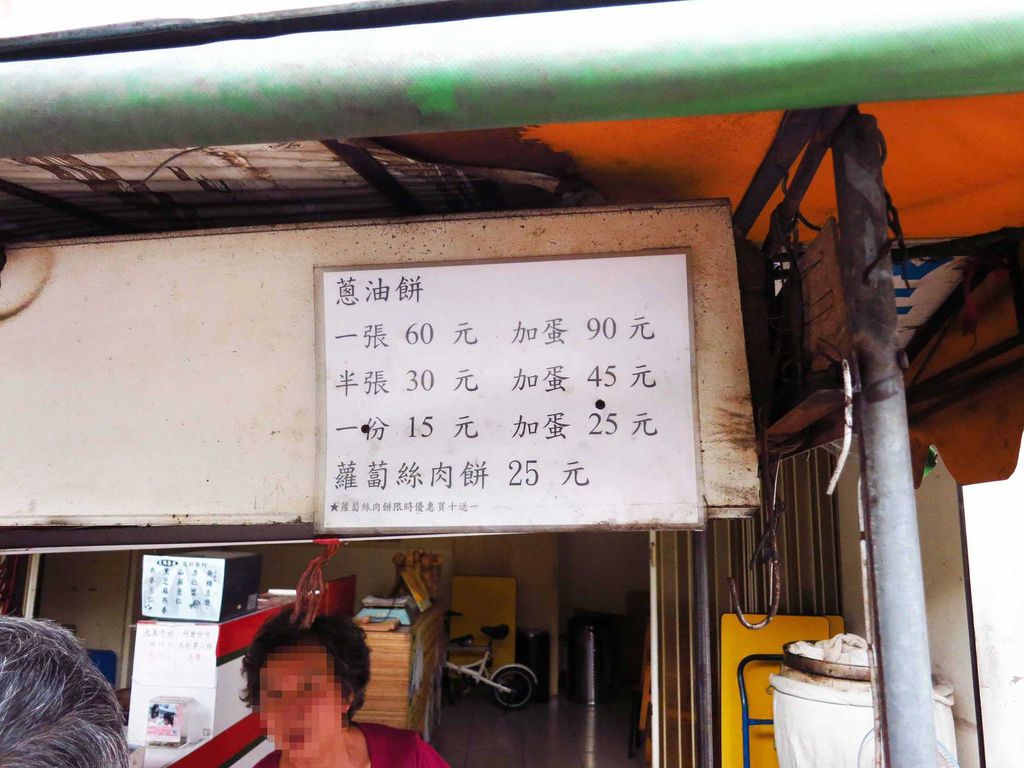 蔥油餅
一張 60 元 加蛋 90 元
半張 30 元 加蛋 45 元
一份 15 元 加蛋 25 元
蘿蔔絲肉餅 25 元
★蘿蔔絲肉餅限時優惠買十送一